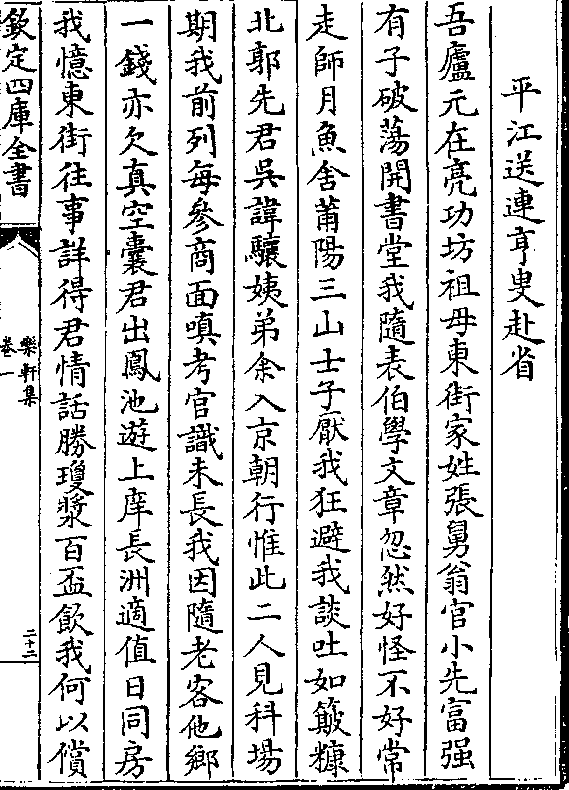 平江送連亨叟赴省
吾廬元在亮功坊祖母東街家姓張舅翁官小先富强
有子破蕩開書堂我隨表伯學文章忽然好怪不好常
走師月魚舍莆陽三山士子厭我狂避我談吐如簸糠
北郭先君吳諱驤姨弟余入京朝行惟此二人見科場
期我前列每參商面嗔考官識未長我因隨老客他鄉
一錢亦欠真空囊君出鳳池遊上庠長洲適值日同房
我憶東街往事詳得君情話勝瓊漿百盃飲我何以償
欽定四庫全書
樂軒集
卷一
二十二